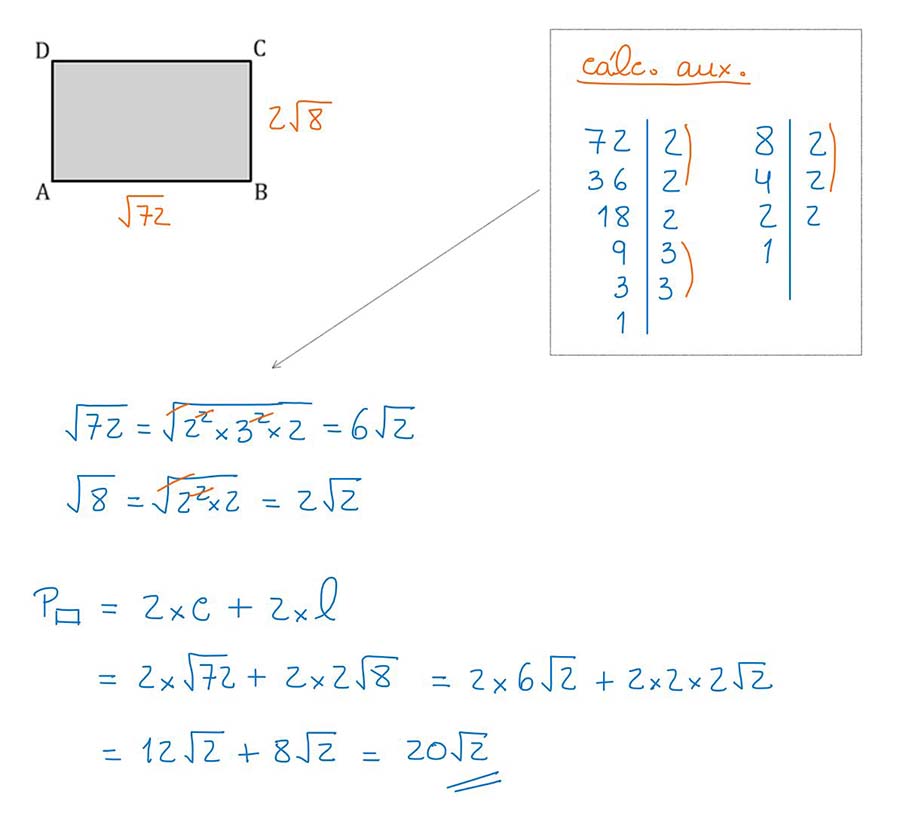 D C
2√8
A B
√72
cálc. aux.
72 | 2
36 | 2
18 | 2
9 | 3
3 | 3
1 |
8 | 2
4 | 2
2 | 2
1 |
√72 = √(2² × 3² × 2) = 6√2
√8 = √(2² × 2) = 2√2
P▭ = 2 × c + 2 × l
= 2 × √72 + 2 × 2√8 = 2 × 6√2 + 2 × 2 × 2√2
= 12√2 + 8√2 = 20√2